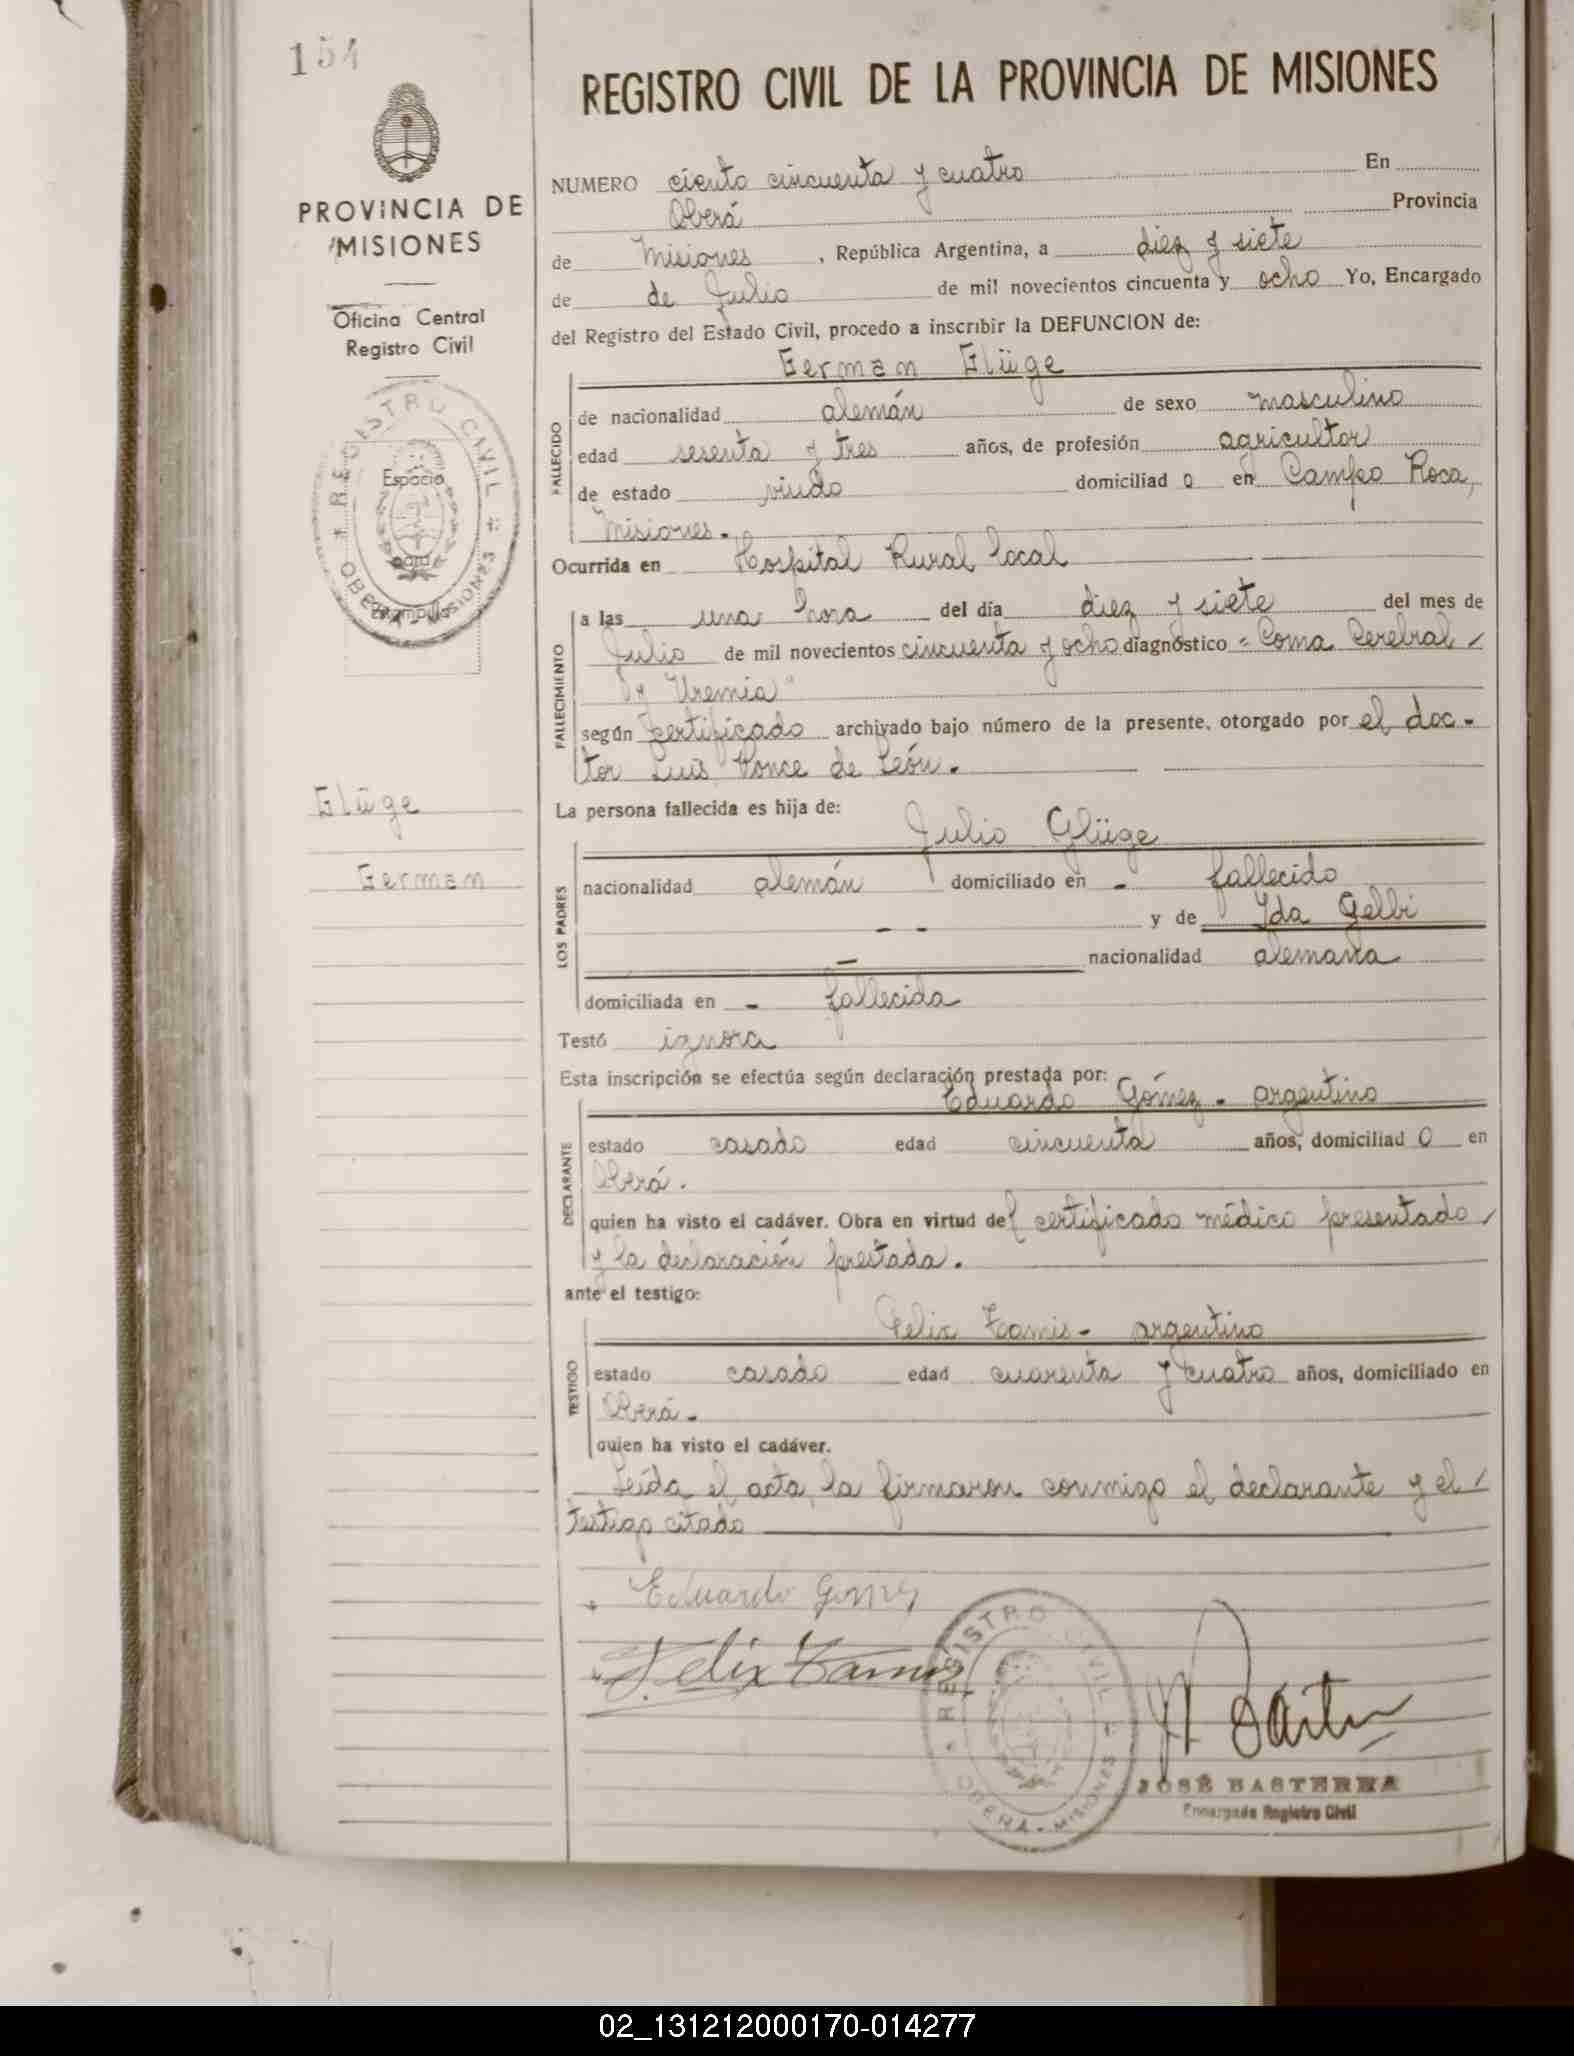 154
PROVINCIA DE
MISIONES
Oficina Central
Registro Civil
REGISTRO CIVIL
Espacio
para
Estampilla
OBERA - MISIONES
Glüge
German
REGISTRO CIVIL DE LA PROVINCIA DE MISIONES
NUMERO ciento cincuenta y cuatro En
Oberá Provincia
de Misiones, República Argentina, a diez y siete
de de Julio de mil novecientos cincuenta y ocho Yo, Encargado
del Registro del Estado Civil, procedo a inscribir la DEFUNCION de:
German Glüge
FALLECIDO
de nacionalidad alemán de sexo masculino
edad sesenta y tres años, de profesión agricultor
de estado viudo domiciliad o en Campo Roca,
Misiones.-
Ocurrida en Hospital Rural local
FALLECIMIENTO
a las una hora del día diez y siete del mes de
Julio de mil novecientos cincuenta y ocho diagnóstico = Coma Cerebral
y Uremia"
según certificado archivado bajo número de la presente, otorgado por el doc-
tor Luis Ponce de León.-
La persona fallecida es hija de:
Julio Glüge
LOS PADRES
nacionalidad alemán domiciliado en - fallecido
- - y de Ida Gelbi
- nacionalidad alemana
domiciliada en - fallecida
Testó ignora
Esta inscripción se efectúa según declaración prestada por:
Eduardo Gómez - argentino
DECLARANTE
estado casado edad cincuenta años, domiciliad o en
Oberá.
quien ha visto el cadáver. Obra en virtud del certificado médico presentado
y la declaración prestada.
ante el testigo:
Felix Tamis - argentino
TESTIGO
estado casado edad cuarenta y cuatro años, domiciliado en
Oberá.-
quien ha visto el cadáver.
Leída el acta, la firmaron conmigo el declarante y el
testigo citado
Eduardo Gomez
Felix Tamis
REGISTRO CIVIL
OBERA - MISIONES
JOSÉ BASTERRA
Encargado Registro Civil
02_131212000170-014277